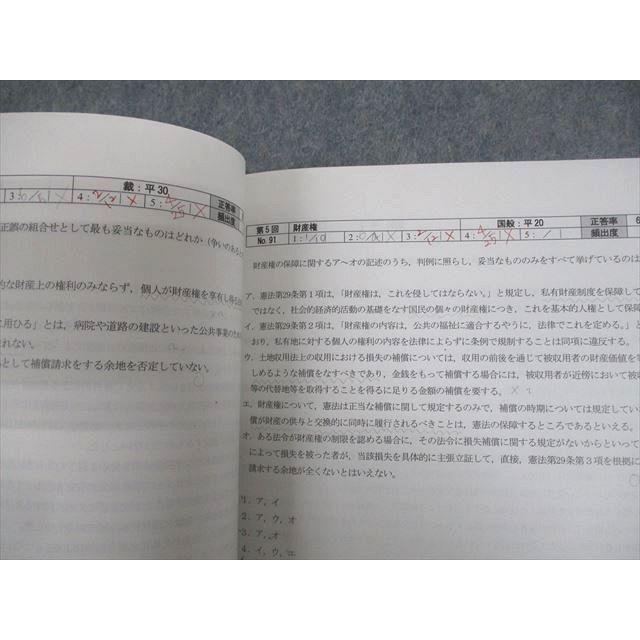 裁:平30
正答率
頻出度
正誤の組合せとして最も妥当なものはどれか(争いのあると
的な財産上の権利のみならず、個人が財産権を享有し得る
に用ひる」とは、病院や道路の建設といった公共事業のため
れない。
として補償請求をする余地を否定していない。
第5回 財産権 国般:平20 正答率 6
No.91 頻出度
財産権の保障に関するア~オの記述のうち、判例に照らし、妥当なもののみをすべて挙げているのは
ア.憲法第29条第1項は、「財産権は、これを侵してはならない。」と規定し、私有財産制度を保障して
ではなく、社会的経済的活動の基礎をなす国民の個々の財産権につき、これを基本的人権として保障
イ.憲法第29条第2項は、「財産権の内容は、公共の福祉に適合するやうに、法律でこれを定める。」と
おり、私有地に対する個人の権利の内容を法律によらずに条例で規制することは同項に違反する。
ウ.土地収用法上の収用における損失の補償については、収用の前後を通じて被収用者の財産価値を等
しめるような補償をなすべきであり、金銭をもって補償する場合には、被収用者が近傍において被収
等の代替地等を取得することを得るに足りる金額の補償を要する。
エ.財産権について、憲法は正当な補償に関して規定するのみで、補償の時期については規定してい
償が財産の供与と交換的に同時に履行されるべきことは、憲法の保障するところであるといえる。
オ.ある法令が財産権の制限を認める場合に、その法令に損失補償に関する規定がないからといって
によって損失を被った者が、当該損失を具体的に主張立証して、直接、憲法第29条第3項を根拠に
請求する余地が全くないとはいえない。
1.ア、イ
2.ア、ウ、オ
3.ア、オ
4.イ、ウ、エ